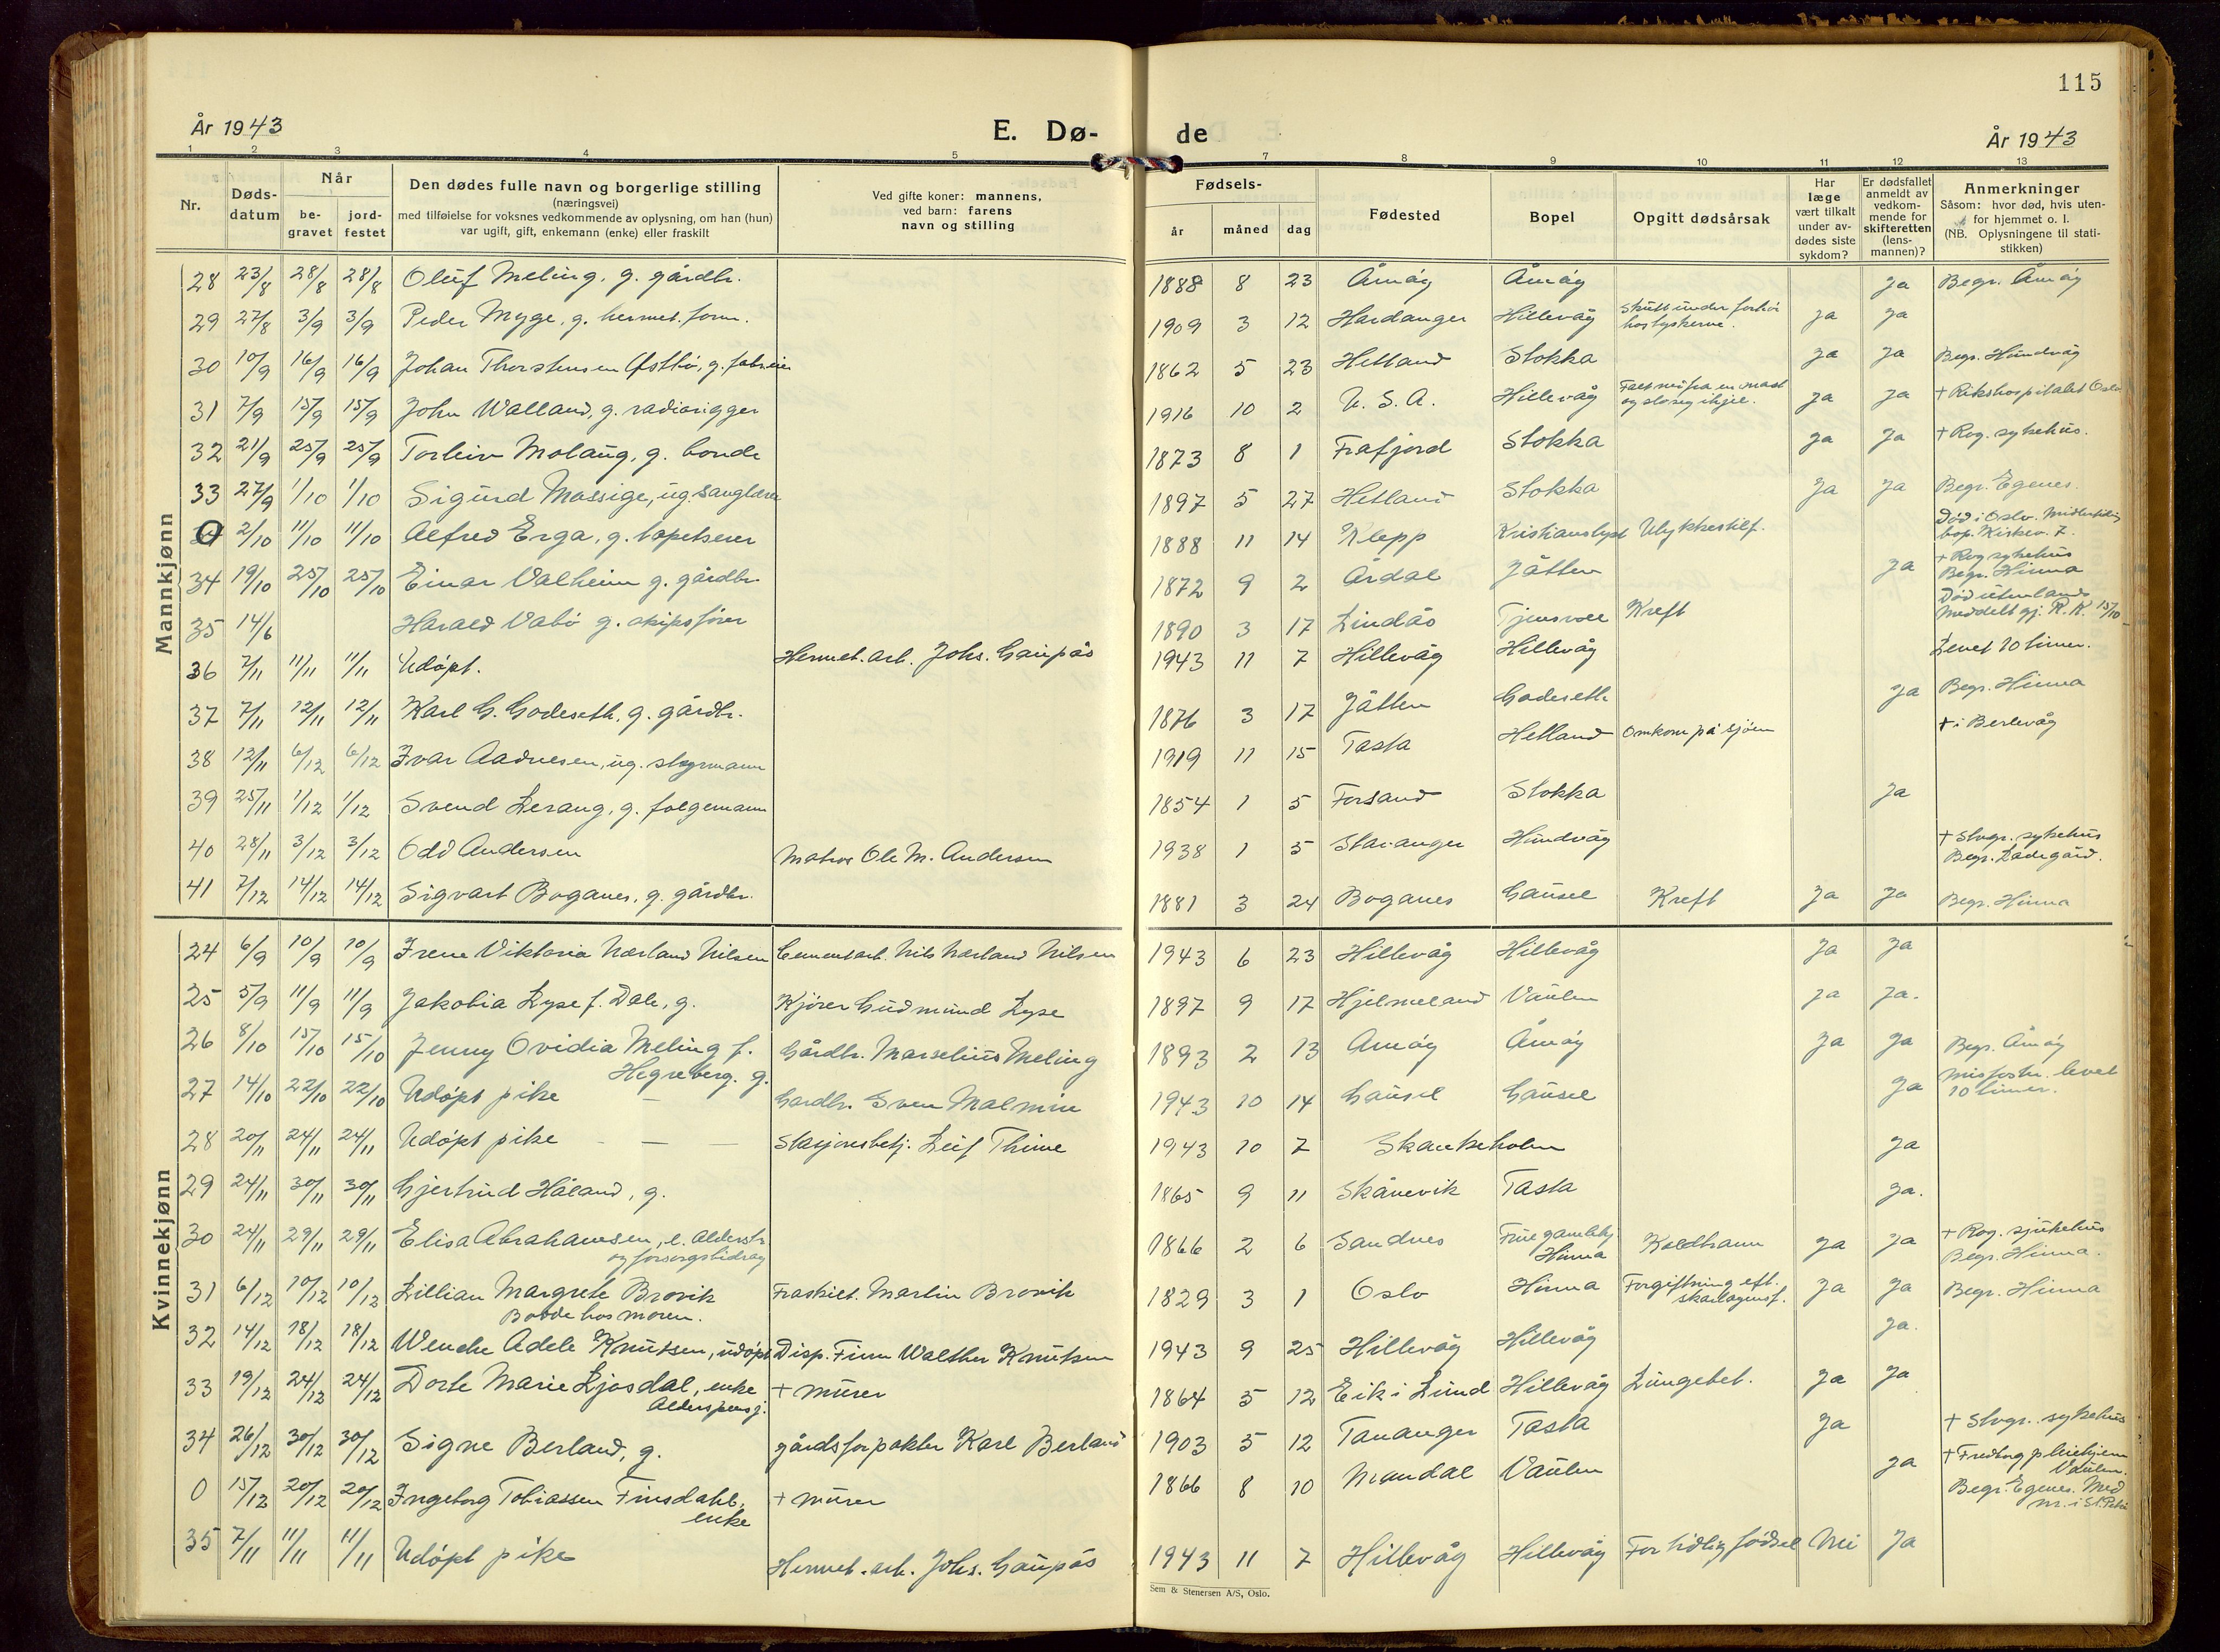 115
År 1943 E. Dø- de År 1943
1 2 3 4 5 7 8 9 10 11 12 13
Nr.
Døds-
datum
Når
be-
gravet
jord-
festet
Den dødes fulle navn og borgerlige stilling
(næringsvei)
med tilføielse for voksnes vedkommende av oplysning, om han (hun)
var ugift, gift, enkemann (enke) eller fraskilt
Ved gifte koner: mannens,
ved barn: farens
navn og stilling
Fødsels-
år måned dag
Fødested
Bopel
Opgitt dødsårsak
Har
læge
vært tilkalt
under av-
dødes siste
sykdom?
Er dødsfallet
anmeldt av
vedkom-
mende for
skifteretten
(lens-
mannen)?
Anmerkninger
Såsom: hvor død, hvis uten-
for hjemmet o. l.
(NB. Oplysningene til stati-
stikken)
Mannkjønn
28 23/8 28/8 28/8 Oluf Meling, g. gårdbr. 1888 8 23 Åmøy Åmøy Ja Begr. Åmøy
29 27/8 3/9 3/9 Peder Myge, g. hermet. form. 1909 3 12 Hardanger Hillevåg Skutt under forhør
hos tyskerne. Ja Ja
30 10/9 16/9 16/9 Johan Thorstensen Østbø, g. fabr.eier 1862 5 23 Hetland Stokka Ja Ja Begr. Hundvåg
31 7/9 15/9 15/9 John Walland, g. radiorigger 1916 10 2 U. S. A. Hillevåg Falt ned fra en mast
og slo seg ihjel. Ja Ja + Rikshospitalet Oslo
32 21/9 25/9 25/9 Torleiv Molaug, g. bonde 1873 8 1 Frafjord Stokka Ja Ja + Rog. sykehus.
33 27/9 1/10 1/10 Sigurd Mossige, ug. sanglærer 1897 5 27 Hetland Stokka Ja Ja Begr. Egenes.
0 2/10 11/10 11/10 Alfred Erga, g. tapetserer 1888 11 14 Klepp Kristianslyst Ulykkestilf. Død i Oslo. Midlertidig
bop. Kirkev. 7.
34 19/10 25/10 25/10 Einar Valheim g. gårdbr. 1872 9 2 Årdal Jåtten Ja + Rog sykehus
Begr. Hinna
35 14/6 Harald Vabø g. skipsfører 1890 3 17 Lindås Tjensvoll Kreft Død utenlands
Meddelt gj. R. K. 15/10
36 7/11 11/11 11/11 Udøpt. Hermet. arb. Johs. Gaupås 1943 11 7 Hillevåg Hillevåg Levet 10 timer.
37 7/11 12/11 12/11 Karl G. Godeseth, g. gårdbr. 1876 3 17 Jåtten Godeseth Ja Begr. Hinna
38 12/11 6/12 6/12 Ivar Aadnesen, ug. styrmann 1919 11 15 Tasta Hetland Omkom på sjøen + i Berlevåg
39 25/11 1/12 1/12 Svend Lerang, g. folgemann 1854 1 5 Forsand Stokka Ja
40 28/11 3/12 3/12 Odd Andersen Matros Ole M. Andersen 1938 1 5 Stavanger Hundvåg + Stvgr. sykehus
Begr. Ladegård.
41 7/12 14/12 14/12 Sigvart Boganes, g. gårdbr. 1881 3 24 Boganes Gausel Kreft Ja Ja Begr. Hinna
Kvinnekjønn
24 6/9 10/9 10/9 Irene Viktoria Nærland Nilsen Cementarb. Nils Nærland Nilsen 1943 6 23 Hillevåg Hillevåg Ja Ja
25 5/9 11/9 11/9 Jakobia Lyse f. Dale, g. Kjører Gudmund Lyse 1897 9 17 Hjelmeland Vaulen Ja Ja.
26 8/10 15/10 15/10 Jenny Ovidia Meling f.
Hegreberg. g. Gårdbr. Marselius Meling 1893 2 13 Åmøy Åmøy Ja Ja Begr. Åmøy
27 14/10 22/10 22/10 Udøpt pike — Gardbr. Sven Malmin 1943 10 14 Gausel Gausel Ja Misfostr. levet
10 timer.
28 20/11 24/11 24/11 Udøpt pike — — — Stasjonsbetj. Leif Thime 1943 10 7 Skankeholm Ja
29 24/11 30/11 30/11 Gjertrud Håland, g. 1865 9 11 Skånevik Tasta Ja.
30 24/11 29/11 29/11 Elisa Abrahamsen, e. Alderstr.
og forsorgsbidrag 1866 2 6 Sandnes Frue gamlehj.
Hinna Koldbrann Ja Ja + Rog. sjukehus
Begr. Hinna.
31 6/12 10/12 10/12 Lillian Margrete Brovik
Bodde hos moren. Fraskilt. Martin Brovik 1829 3 1 Oslo Hinna Forgiftning eft.
skarlagensf. Ja Ja Begr. Hinna
32 14/12 18/12 18/12 Wenche Adele Knutsen, udøpt Disp. Finn Walther Knutsen 1943 9 25 Hillevåg Hillevåg Ja.
33 19/12 24/12 24/12 Dorte Marie Ljosdal, enke
Alderspensj. + murer 1864 5 12 Eik i Lund Hillevåg Lungebet. Ja Ja
34 26/12 30/12 30/12 Signe Berland, g. gårdsforpakter Karl Berland 1903 5 12 Tananger Tasta Ja + Stvgr. sykehus
0 15/12 20/12 20/12 Ingeborg Tobiassen Finsdahl,
enke + murer 1866 8 10 Mandal Vaulen Ja + Fredborg pleiehjem
Vaulen.
Begr. Egenes. Med
nr. i St. Petri
35 7/11 11/11 11/11 Udøpt pike Hermet. arb. Johs. Gaupås 1943 11 7 Hillevåg Hillevåg For tidlig fødsel Nei Ja
Sem & Stenersen A/S, Oslo.